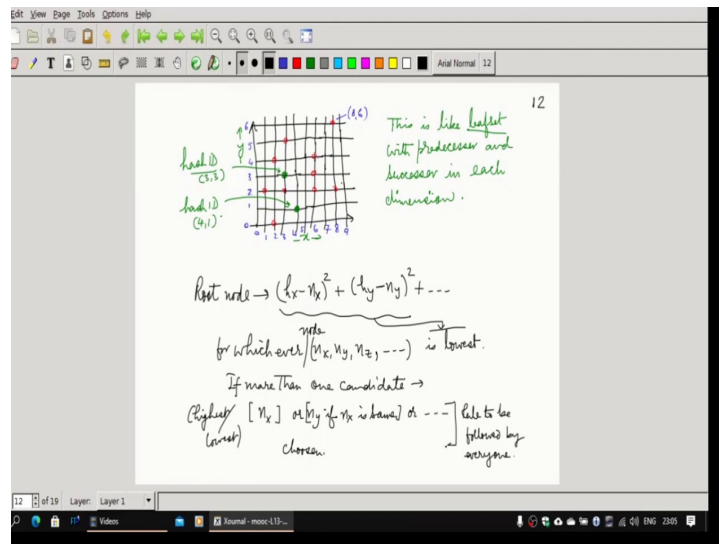 Edit View Page Tools Options Help
Arial Normal 12
12
6
5
4
3
2
1
0
y
0 1 2 3 4 5 6 7 8 9
x
(8,6)
hash ID
(3,3)
hash ID
(4,1)
This is like leafset
with predecessor and
successor in each
dimension.
Root node → (hx-nx)² + (hy-ny)² + ----
for which ever node (nx, ny, nz, ---) is lowest.
If more than one candidate →
(highest/ lowest) [nx] or [ny if nx is same] or ---
choosen.
Rule to be
followed by
everyone.
12 of 19 Layer: Layer 1
Videos
Xournal - mooc-L13-...
ENG 23:05